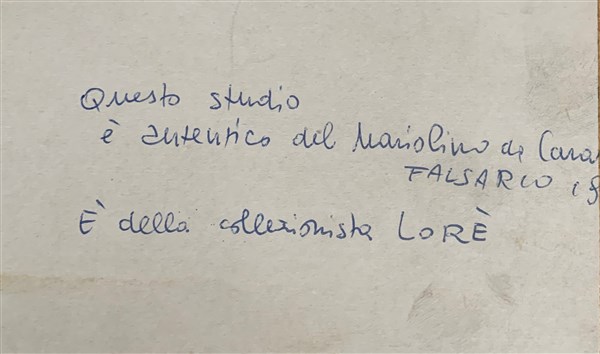 Questo studio
è autentico del Mariolino da Cara
FALSARIO
È della collezionista LORÈ